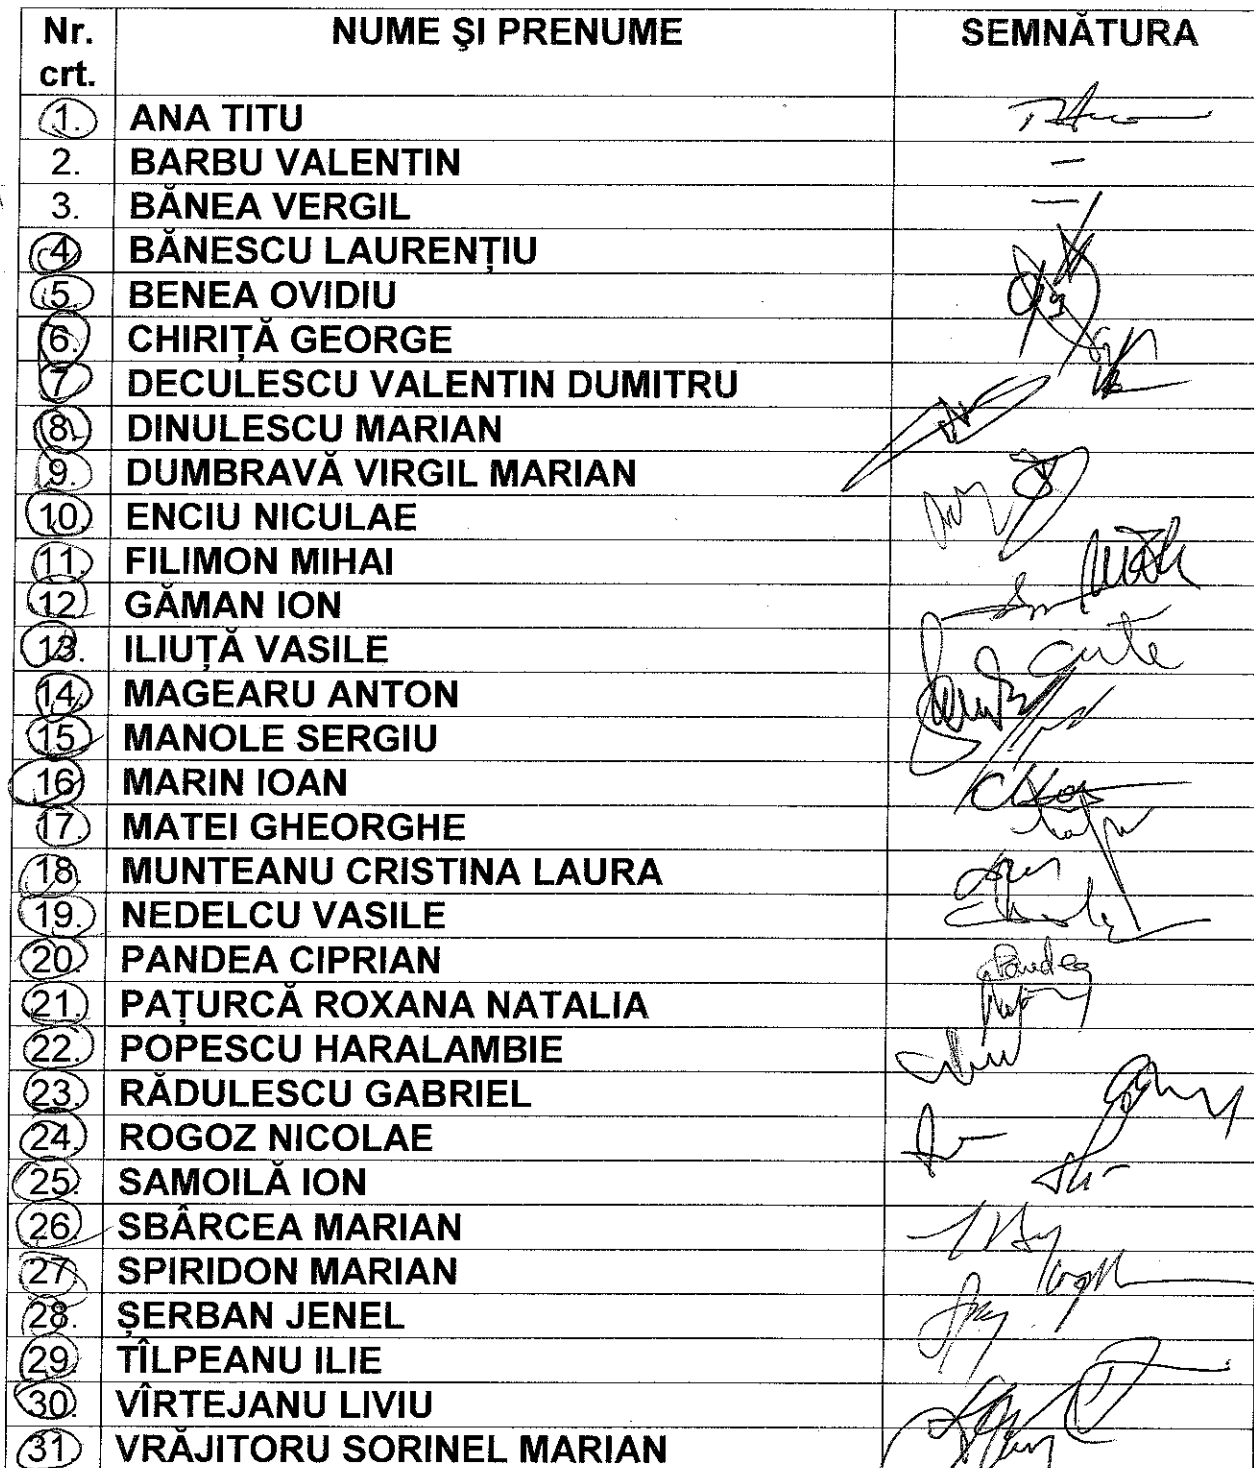 Nr. crt. NUME ŞI PRENUME SEMNĂTURA
1. ANA TITU
2. BARBU VALENTIN –
3. BĂNEA VERGIL –
4 BĂNESCU LAURENŢIU
5. BENEA OVIDIU
6. CHIRIŢĂ GEORGE
7 DECULESCU VALENTIN DUMITRU
8. DINULESCU MARIAN
9. DUMBRAVĂ VIRGIL MARIAN
10 ENCIU NICULAE
11. FILIMON MIHAI
12 GĂMAN ION
13. ILIUŢĂ VASILE
14. MAGEARU ANTON
15 MANOLE SERGIU
16 MARIN IOAN
17. MATEI GHEORGHE
18. MUNTEANU CRISTINA LAURA
19. NEDELCU VASILE
20. PANDEA CIPRIAN Pandea
21. PAŢURCĂ ROXANA NATALIA
22. POPESCU HARALAMBIE
23. RĂDULESCU GABRIEL
24. ROGOZ NICOLAE
25. SAMOILĂ ION
26. SBÂRCEA MARIAN
27. SPIRIDON MARIAN
28. ŞERBAN JENEL
29. TÎLPEANU ILIE
30. VÎRTEJANU LIVIU
31. VRĂJITORU SORINEL MARIAN